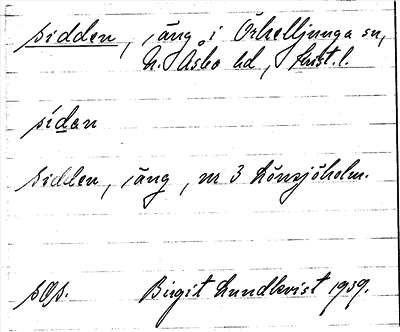 sidden, äng i Örkelljunga sn,
N. Åsbo hd, Krist. l.
sídan
sidden, äng, nr 3 Lönsjöholm.
sOp. Birgit Lundkvist 1939.